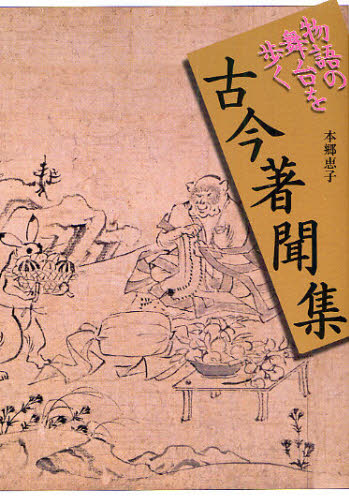 物語の
舞台を
歩く
古今著聞集
本郷恵子